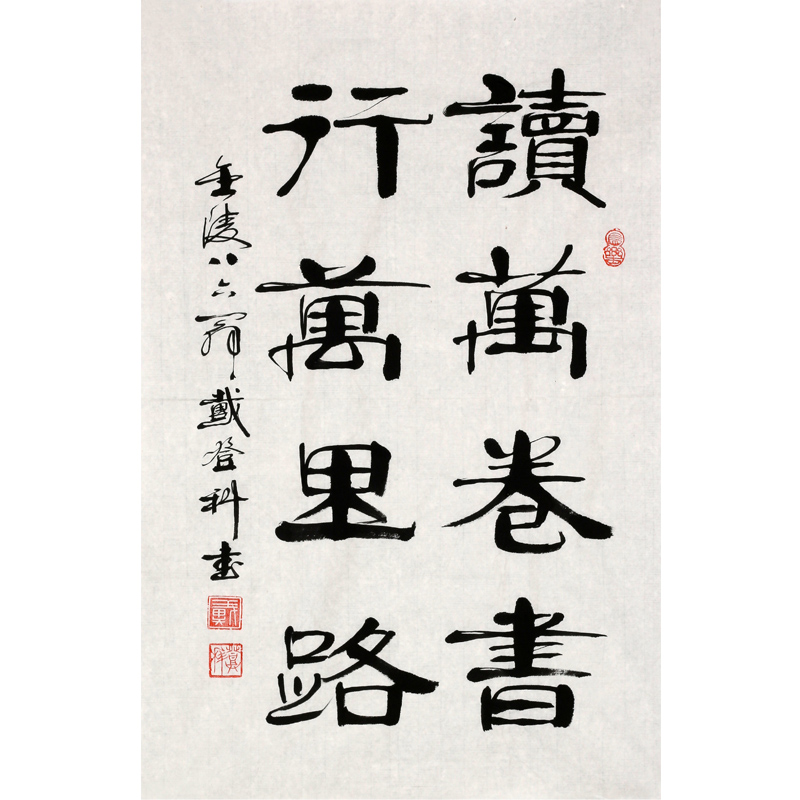 讀萬卷書
行萬里路
金陵八六翁戴登科書